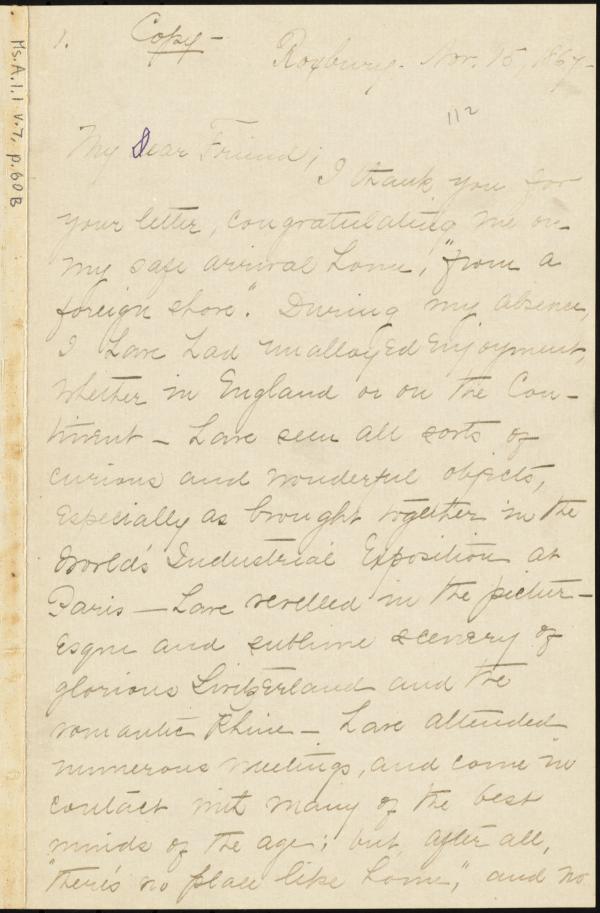 Ms. A. 1. 1 v. 7, p. 60B
1. Copy-
Roxbury. Nov. 15, 1867-
112
My Dear Friend;
I thank you for
your letter, congratulating me on
my safe arrival home, "from a
foreign shore." During my absence,
I have had unalloyed enjoyment,
whether in England or on the Con-
tinent - have seen all sorts of
curious and wonderful objects,
especially as brought together in the
World's Industrial Exposition at
Paris - have revelled in the pictur-
esque and sublime scenery of
glorious Switzerland and the
romantic Rhine - have attended
numerous meetings, and come in
contact with many of the best
minds of the age; but, after all,
"there's no place like home," and no